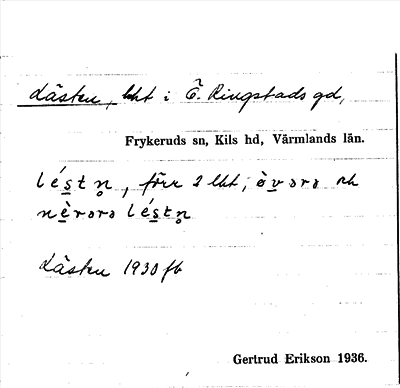 Lästen, lht i Ö. Ringstads gd,
Frykeruds sn, Kils hd, Värmlands län.
lés̲tn̥, förr 2 lht, òv̲ərə och
nè̲rərə lés̲tn̥
Lästen 1930 jb
Gertrud Erikson 1936.